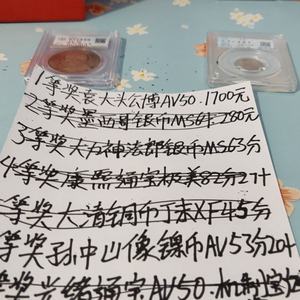 1等奖袁大头公博AV50.1700元
2等奖墨西哥银币MS61.280元
3等奖大力神法郎银币MS63分
4等奖康熙通宝极美82分21十
等奖大清铜币丁未XF45分
等奖孙中山像镍币AV53分20十
等奖光绪通宝AV50.机制宝